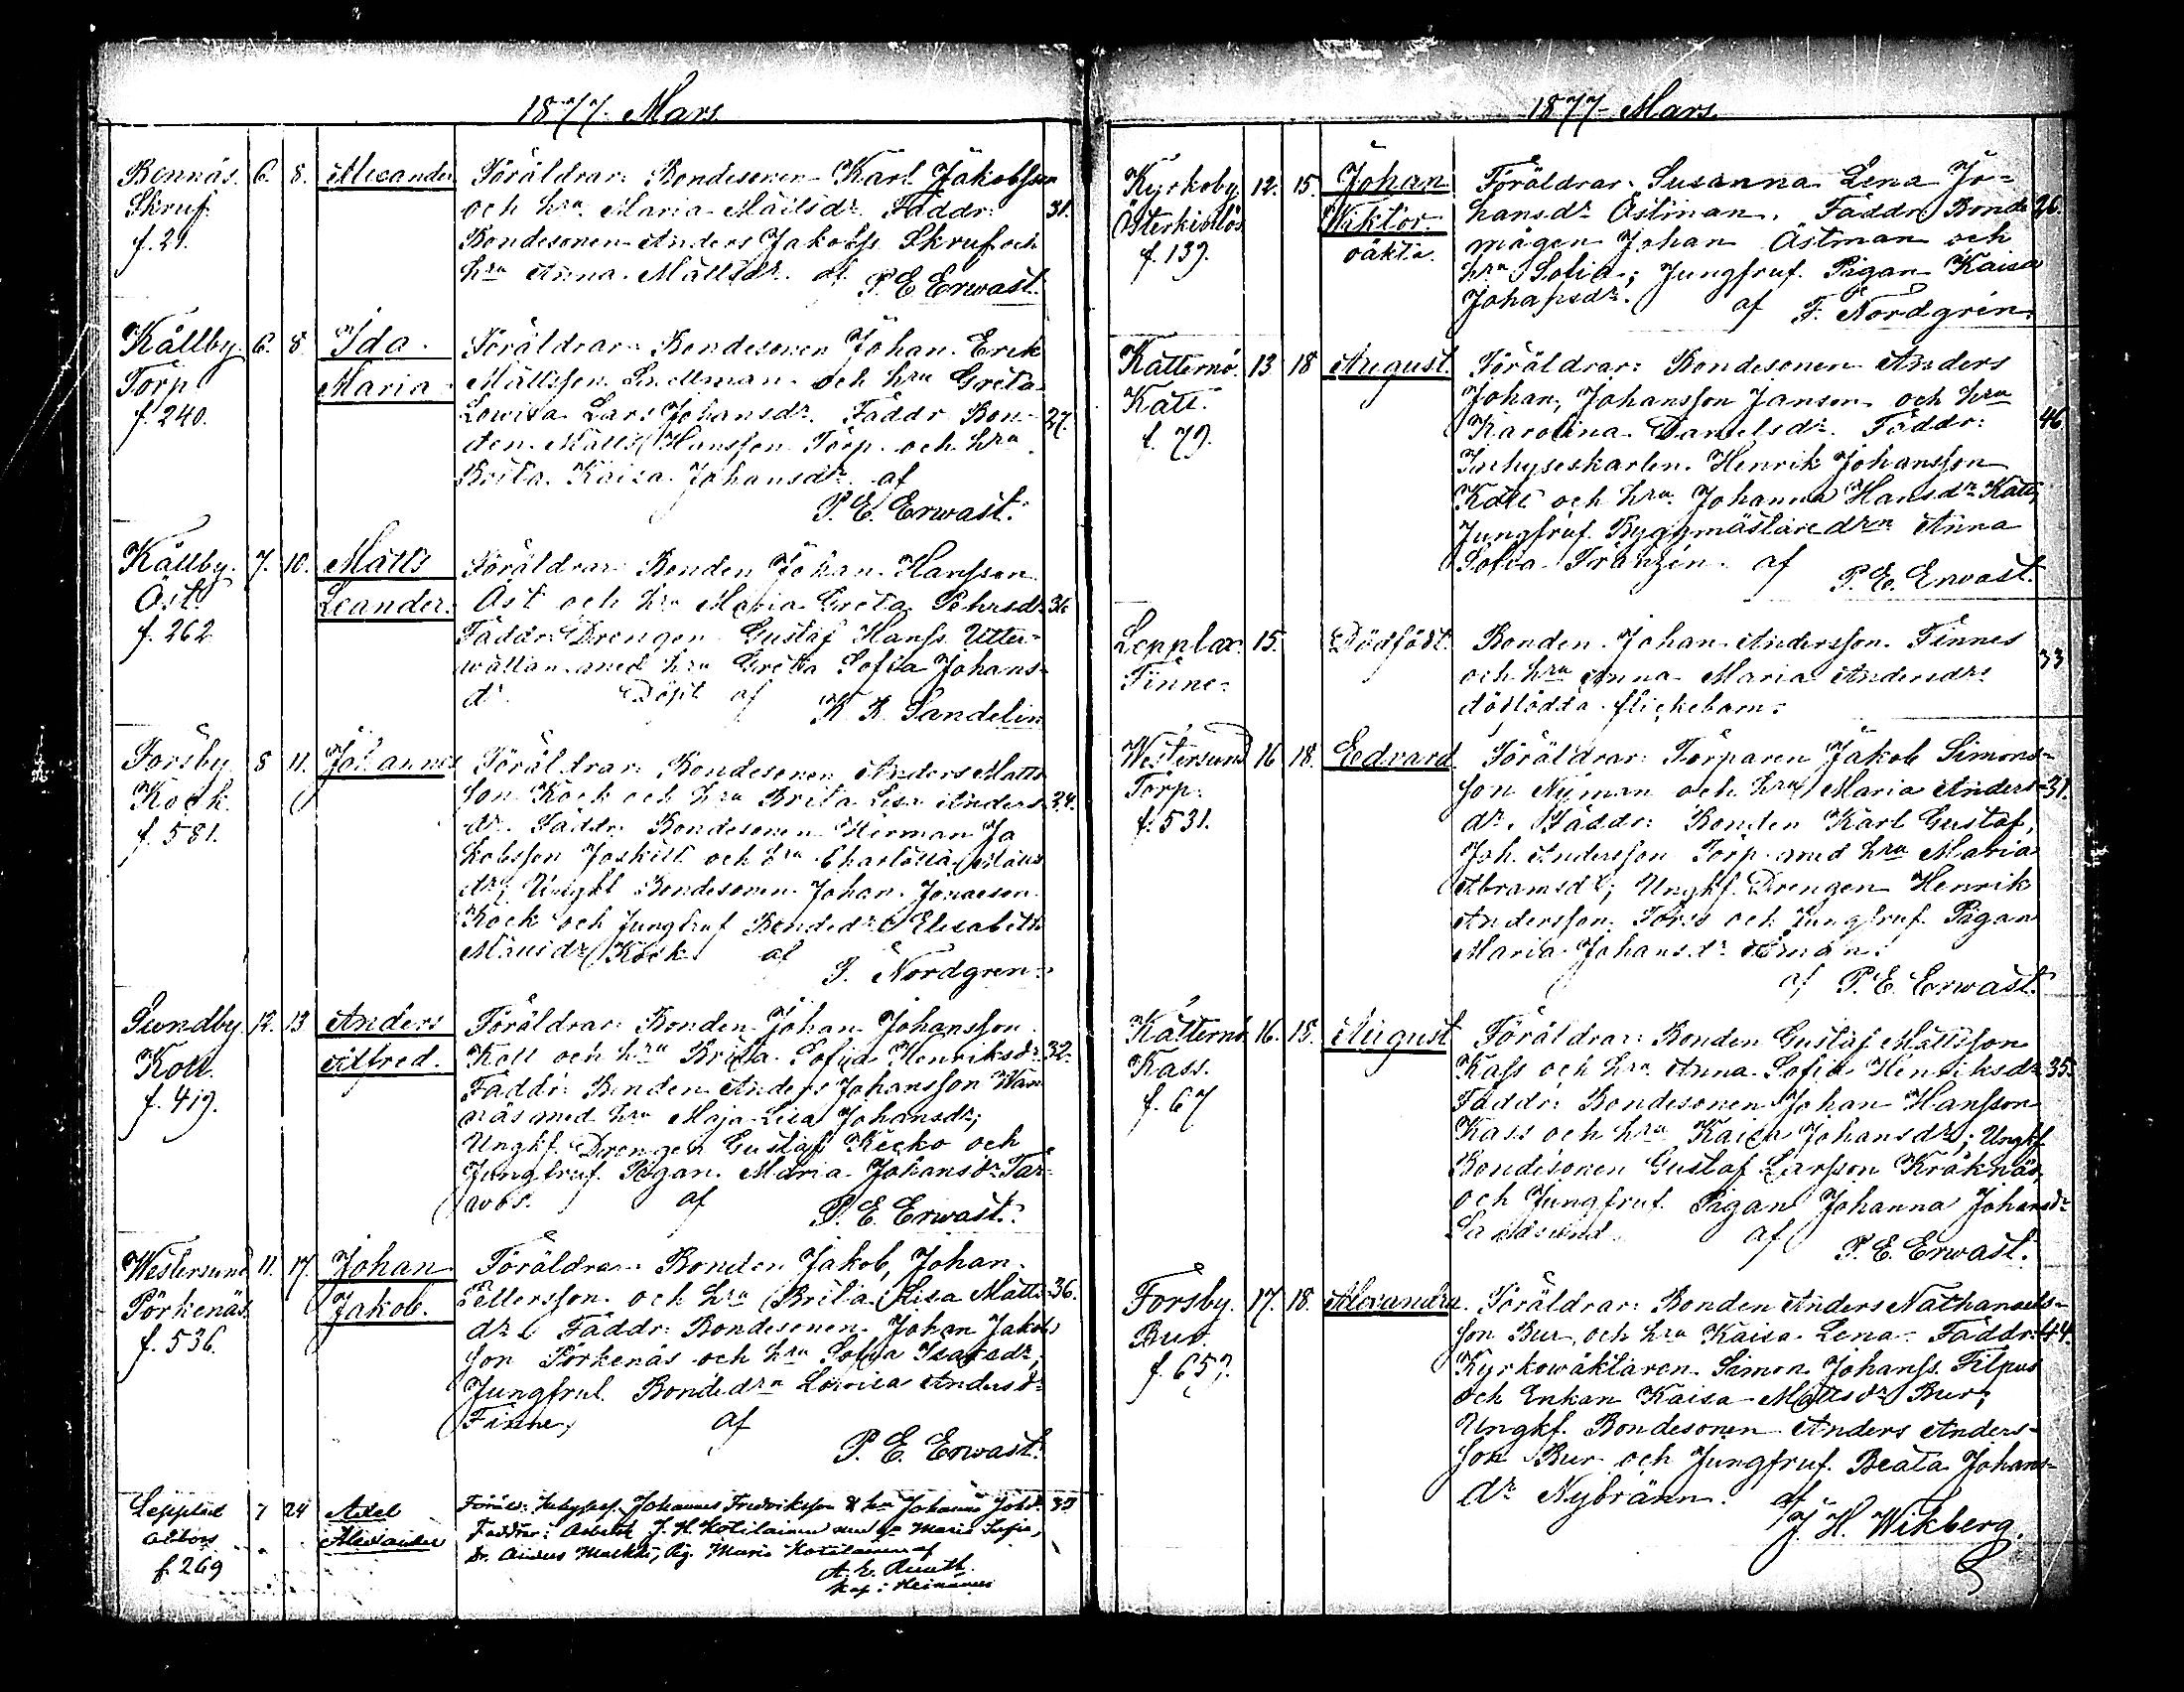 1877. Mars.
Bennäs. 6. 8. Alexander Föräldrar: Bondesonen Karl Jakobsson
Skruf och hru Maria Mattsdr. Faddr: 31.
f. 21. Bondesonen Anders Jakobss. Skruf och
hru Anna Mattsdr. af P. E. Erwast.
Kållby. 6. 8 Ida Föräldrar: Bondesonen Johan Erik
Torp Maria Mattsson Snellman och hru Greta
f. 240. Lowisa Lars Johansdr. Faddr Bon- 27.
den Matts Hansson Torp och hru
Brita Kaisa Johansdr. af
P. E. Erwast.
Kållby. 7. 10. Matts Föräldrar: Bonden Johan Hansson
Öst Leander. Öst och hru Maria Greta Pehrsdr 36
f. 262 Faddr: Drengen Gustaf Hanss. Utter-
wattan med hru Greta Sofia Johans-
dr. Döpt af K. K. Sandelin
Forsby 8 11. Johannes Föräldrar: Bondesonen Anders Matts
Kock son Kock och hru Brita Lisa Anders 24.
f. 581. dr. Faddr: Bondesonen Herman Ja
kobsson Joskitt och hru Charlotta Matts
dr; Ungkf Bondesonen Johan Jonaeson
Kock och Jungfruf Bondedr Elisabeth
Mattsdr Kock af
J. Nordgren.
Sundby. 12. 13 Anders Föräldrar: Bonden Johan Johansson
Koll Alfred. Koll och hru Brita Sofia Henriksdr. 32.
f. 419. Faddr: Bonden Anders Johansson Wan
näs med hru Maja Lisa Johansdr;
Ungkf. Drengen Gustaf Kecko och
Jungfruf. Pigan Maria Johansdr Tar-
wos. af P. E. Erwast.
Westersund 11. 17. Johan Föräldrar: Bonden Jakob Johan
Pörkenäs Jakob. Pettersson och hru Brita Lisa Matts 36.
f. 536. dr. Faddr: Bondesonen Johan Jakobs
son Pörkenäs och hru Sofia Isaksdr;
Jungfruf. Bondedrn Lowisa Andersdr
Finne, af
P. E. Erwast.
7 24 Axel Johannes Fredriksson & hru Johanna Johdr 37
Alexander Faddrar: J. H. Kotilainen med hu Maria Sofia,
f. 269 Dr. Pig. Maria Kotilainen af
1877 Mars.
Kyrkoby. 12. 15. Johan Föräldrar: Susanna Lena Jo-
Wiktor. hansdr Östman. Faddr: Bonde 26.
f. 139. oäkta. mågen Johan Östman och
hru Sofia; Jungfruf. Pigan Kaisa
Johansdr. af F. Nordgren.
Katternö. 13 18 August. Föräldrar: Bondesonen Anders
Katt. Johan, Johansson Janson och hru
f. 79. Karolina Danielsdr. Faddr: 46
Inhyseskarlen Henrik Johansson
Katt och hru Johanna Hansdr Katt,
Jungfruf. Byggmästaredrn Anna
Sofia Franzén. af P. E. Erwast.
Lepplax. 15. Dödfödt. Bonden Johan Andersson Finnes
Finne. och hru Anna Maria Andersdrs 33
dödfödda flickebarn.
Westersund 16 18. Edvard Föräldrar: Torparen Jakob Simons-
Torp. son Nyman och hru Maria Anders- 31.
f. 531. dr. Faddr: Bonden Karl Gustaf,
Joh. Andersson Torp med hru Maria
Abramsdr; Ungkf. Drengen Henrik
Andersson Forss och Jungfruf. Pigan
Maria Johansdr Åman.
af P. E. Erwast.
Katternö 16. 18. August Föräldrar: Bonden Gustaf Mattsson
Kass. Kass och hru Anna Sofia Henriksdr 35.
f. 67 Faddr: Bondesonen Johan Hansson
Kass och hru Kaisa Johansdr; Ungkf.
Bondesonen Gustaf Larsson Kråknäs
och Jungfruf. Pigan Johanna Johansdr
Sandsund. af P. E. Erwast.
Forsby. 17. 18. Alexandra. Föräldrar: Bonden Anders Nathanaels-
Bur. son Bur och hru Kaisa Lena. Faddr: 44.
f. 657. Kyrkowäktaren Simon Johanss. Filpus
och Enkan Kaisa Mattsdr Bur;
Ungkf. Bondesonen Anders Anders-
son Bur och Jungfruf. Beata Johans-
dr Nybränn. af
J. H. Wikberg.